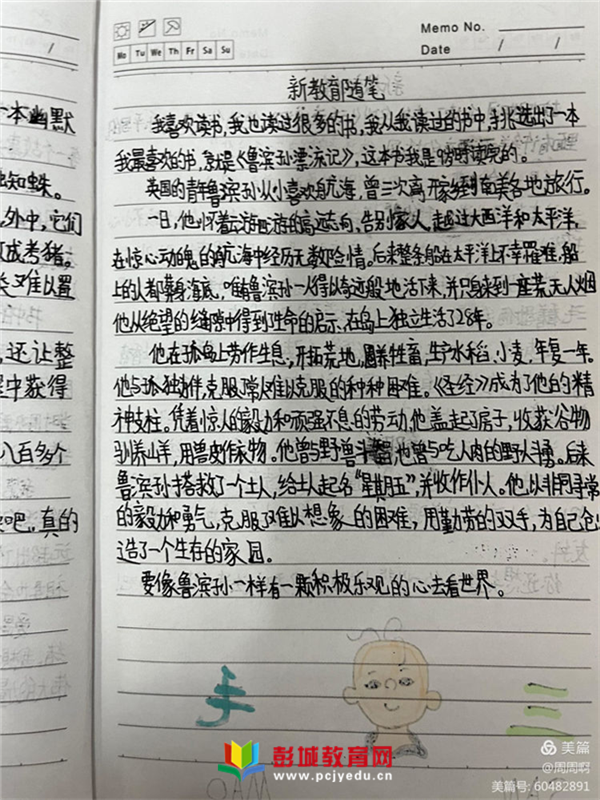 Memo No.
Mo Tu We Th Fr Sa Su
Date / /
新教育随笔
我喜欢读书,我也读过很多的书,我从我读过的书中,挑选出了一本
我最喜欢的书,就是《鲁滨孙漂流记》,这本书我是仿时读完的。
英国的青年鲁滨孙从小喜欢航海,曾三次离开家到南美各地旅行。
一日,他怀着云游四海的高远志向,告别家人,越过大西洋和太平洋,
在惊心动魄的航海中经历无数险情。后来整条船在太平洋上不幸罹难,船
上的人都葬身海底,唯有鲁滨孙一人得以奇迹般地活下来,并只身来到一座荒无人烟
他从绝望的缝隙中得到生命的启示,在岛上独立生活了28年。
他在孤岛上劳作生息,开拓荒地,圈养牲畜,生产水稻,小麦,年复一年。
他与孤独作伴,克服常人难以克服的种种困难。《圣经》成为了他的精
神支柱。凭着惊人的毅力和顽强不息的劳动,他盖起了房子,收获谷物
驯养山羊,用兽皮作衣物。他曾与野兽斗智,也曾与吃人肉的野人斗勇。后来
鲁滨孙搭救了一个土人,给土人起名“星期五”,并收作仆人。他以非同寻常
的毅力和勇气,克服了难以想象的困难,用勤劳的双手,为自己创
造了一个生存的家园。
要像鲁滨孙一样有一颗积极乐观的心去看世界。
一本幽默
蜘蛛。
外中,它们
成考猪。
难以置
还让整
程中获得
八百多个
吧。真的
手
三
彭城教育网
www.pcjyedu.cn
美篇
@周周啊
美篇号: 60482891